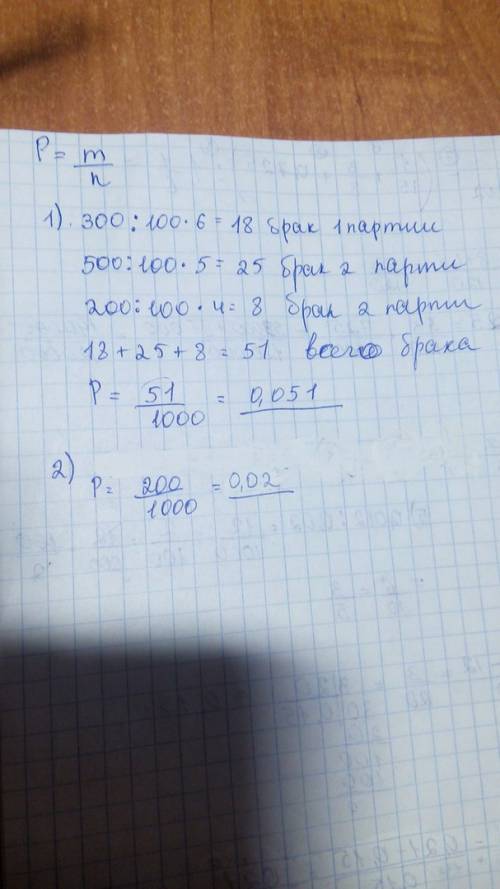 P = m/n
1). 300 : 100 · 6 = 18 брак 1 партии
500 : 100 · 5 = 25 брак 2 парти
200 : 100 · 4 = 8 брак 2 парти
18 + 25 + 8 = 51 всего брака
P = 51/1000 = 0,051
2) P = 200/1000 = 0,02